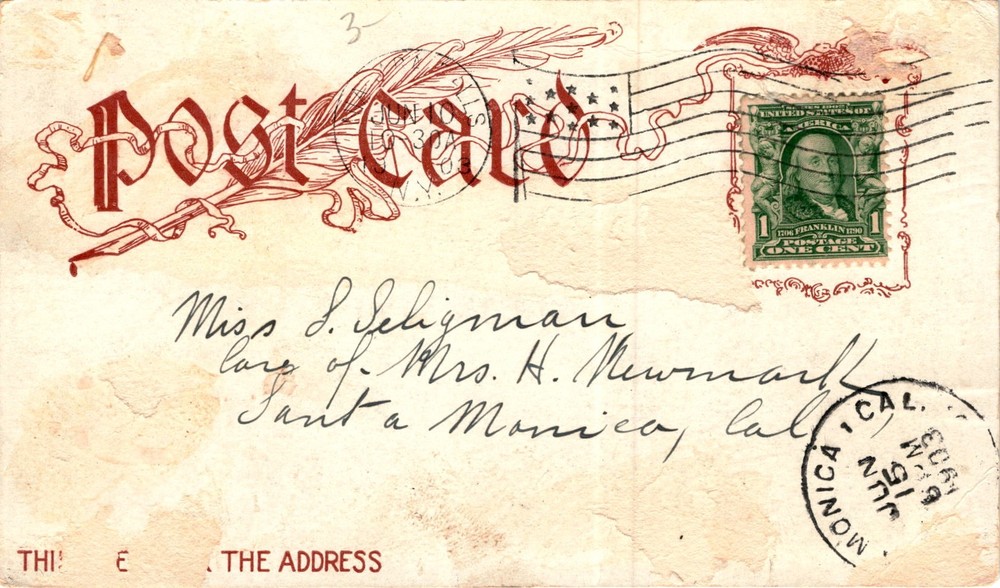 3
Post Card
JUN 10
N.Y.
UNITED STATES OF
AMERICA
1 1
1706 FRANKLIN 1790
POSTAGE
ONE CENT
Miss S. Seligman
Care of Mrs. H. Newmark
Santa Monica, Cal
MONICA, CAL.
JUN
15
6 AM
1903
THI E THE ADDRESS